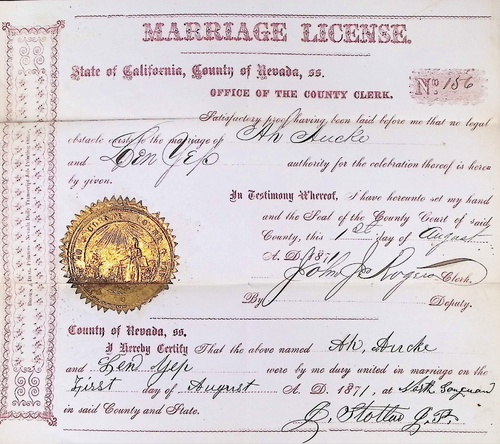 MARRIAGE LICENSE.
State of California, County of Nevada, ss.
No 156
OFFICE OF THE COUNTY CLERK.
Satisfactory proof having been laid before me that no legal
obstacle exists to the marriage of Ah Aucke
and Len Yep authority for the celebration thereof is here
by given.
In Testimony Whereof, I have hereunto set my hand
and the Seal of the County Court of said
County, this 1st day of August
A. D. 1871
John J Rogers Clerk.
By Deputy.
County of Nevada, ss.
I Hereby Certify That the above named Ah, Aucke
and Len Yep were by me duly united in marriage on the
First day of August A. D. 1871, at North
in said County and State.
J. P.